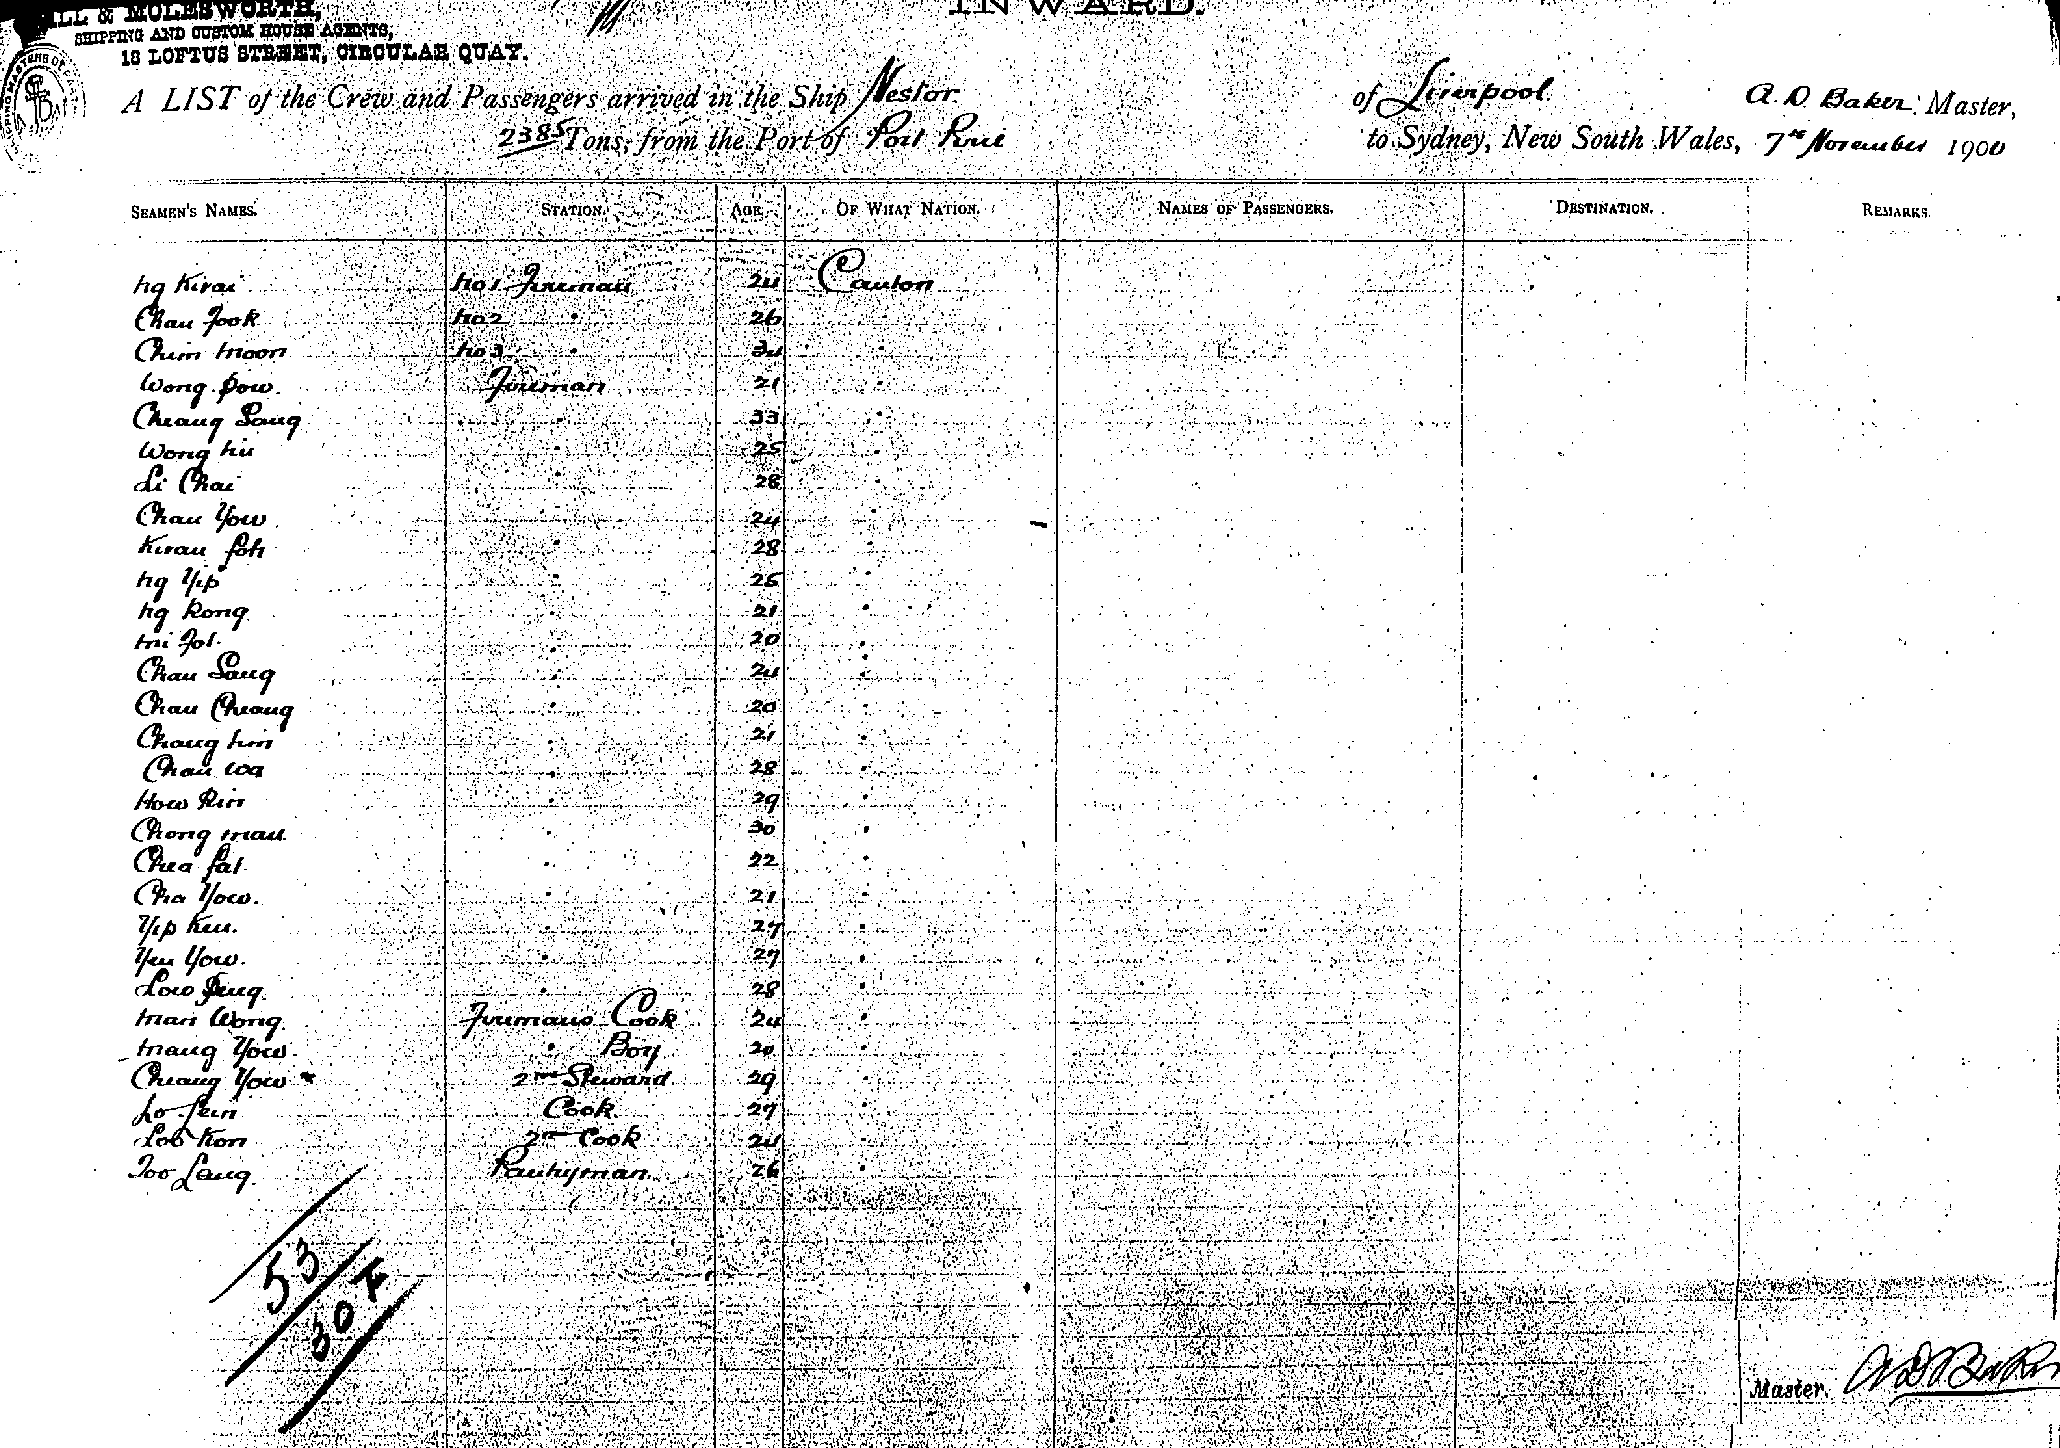 INWARD.
ILL & MOLESWORTH,
SHIPPING AND CUSTOM HOUSE AGENTS,
18 LOFTUS STREET, CIRCULAR QUAY.
A LIST of the Crew and Passengers arrived in the Ship Nestor of Liverpool A. D. Baker. Master,
2385 Tons, from the Port of Port Pirie to Sydney, New South Wales, 7th November 1900
SEAMEN'S NAMES. STATION. AGE OF WHAT NATION. NAMES OF PASSENGERS. DESTINATION. REMARKS.
Ng Kwai No 1 Fireman 24 Canton
Chan Fook No 2 " 26 "
Chim Moon No 3 " 34 "
Wong Sow. Fireman 21 "
Cheang Sang " 33 "
Wong " 25 "
Li Chai " 28 "
Chan Yow " 24 "
Kwan Foh " 28 "
Ng Yip " 25 "
Ng Kong " 21 "
Mi Fot. " 20 "
Chan Sang " 24 "
Chan Cheang " 20 "
Chang " 21 "
Chan Wa " 28 "
How Kin " 29 "
Chong Mau " 30 "
Chea Fat. " 22 "
Cha Yow. " 21 "
Yip Ken. " 27 "
Yen Yow. " 27 "
Low " 28 "
Man Wong. Firemans Cook 24 "
Mang Yow. " Boy 20 "
Cheang Yow 2nd Steward 29 "
Cook 27 "
Loo Kon 2nd Cook 24 "
Too Lang. Pantryman 26 "
53
30
Master. A D Baker